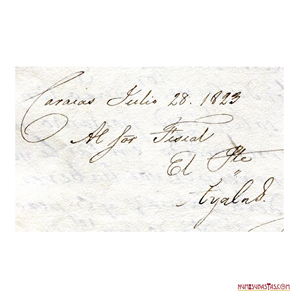 Caracas Julio 28. 1823
Al Sor Fiscal
El Pte
Ayala
NUMISUBASTAS.COM